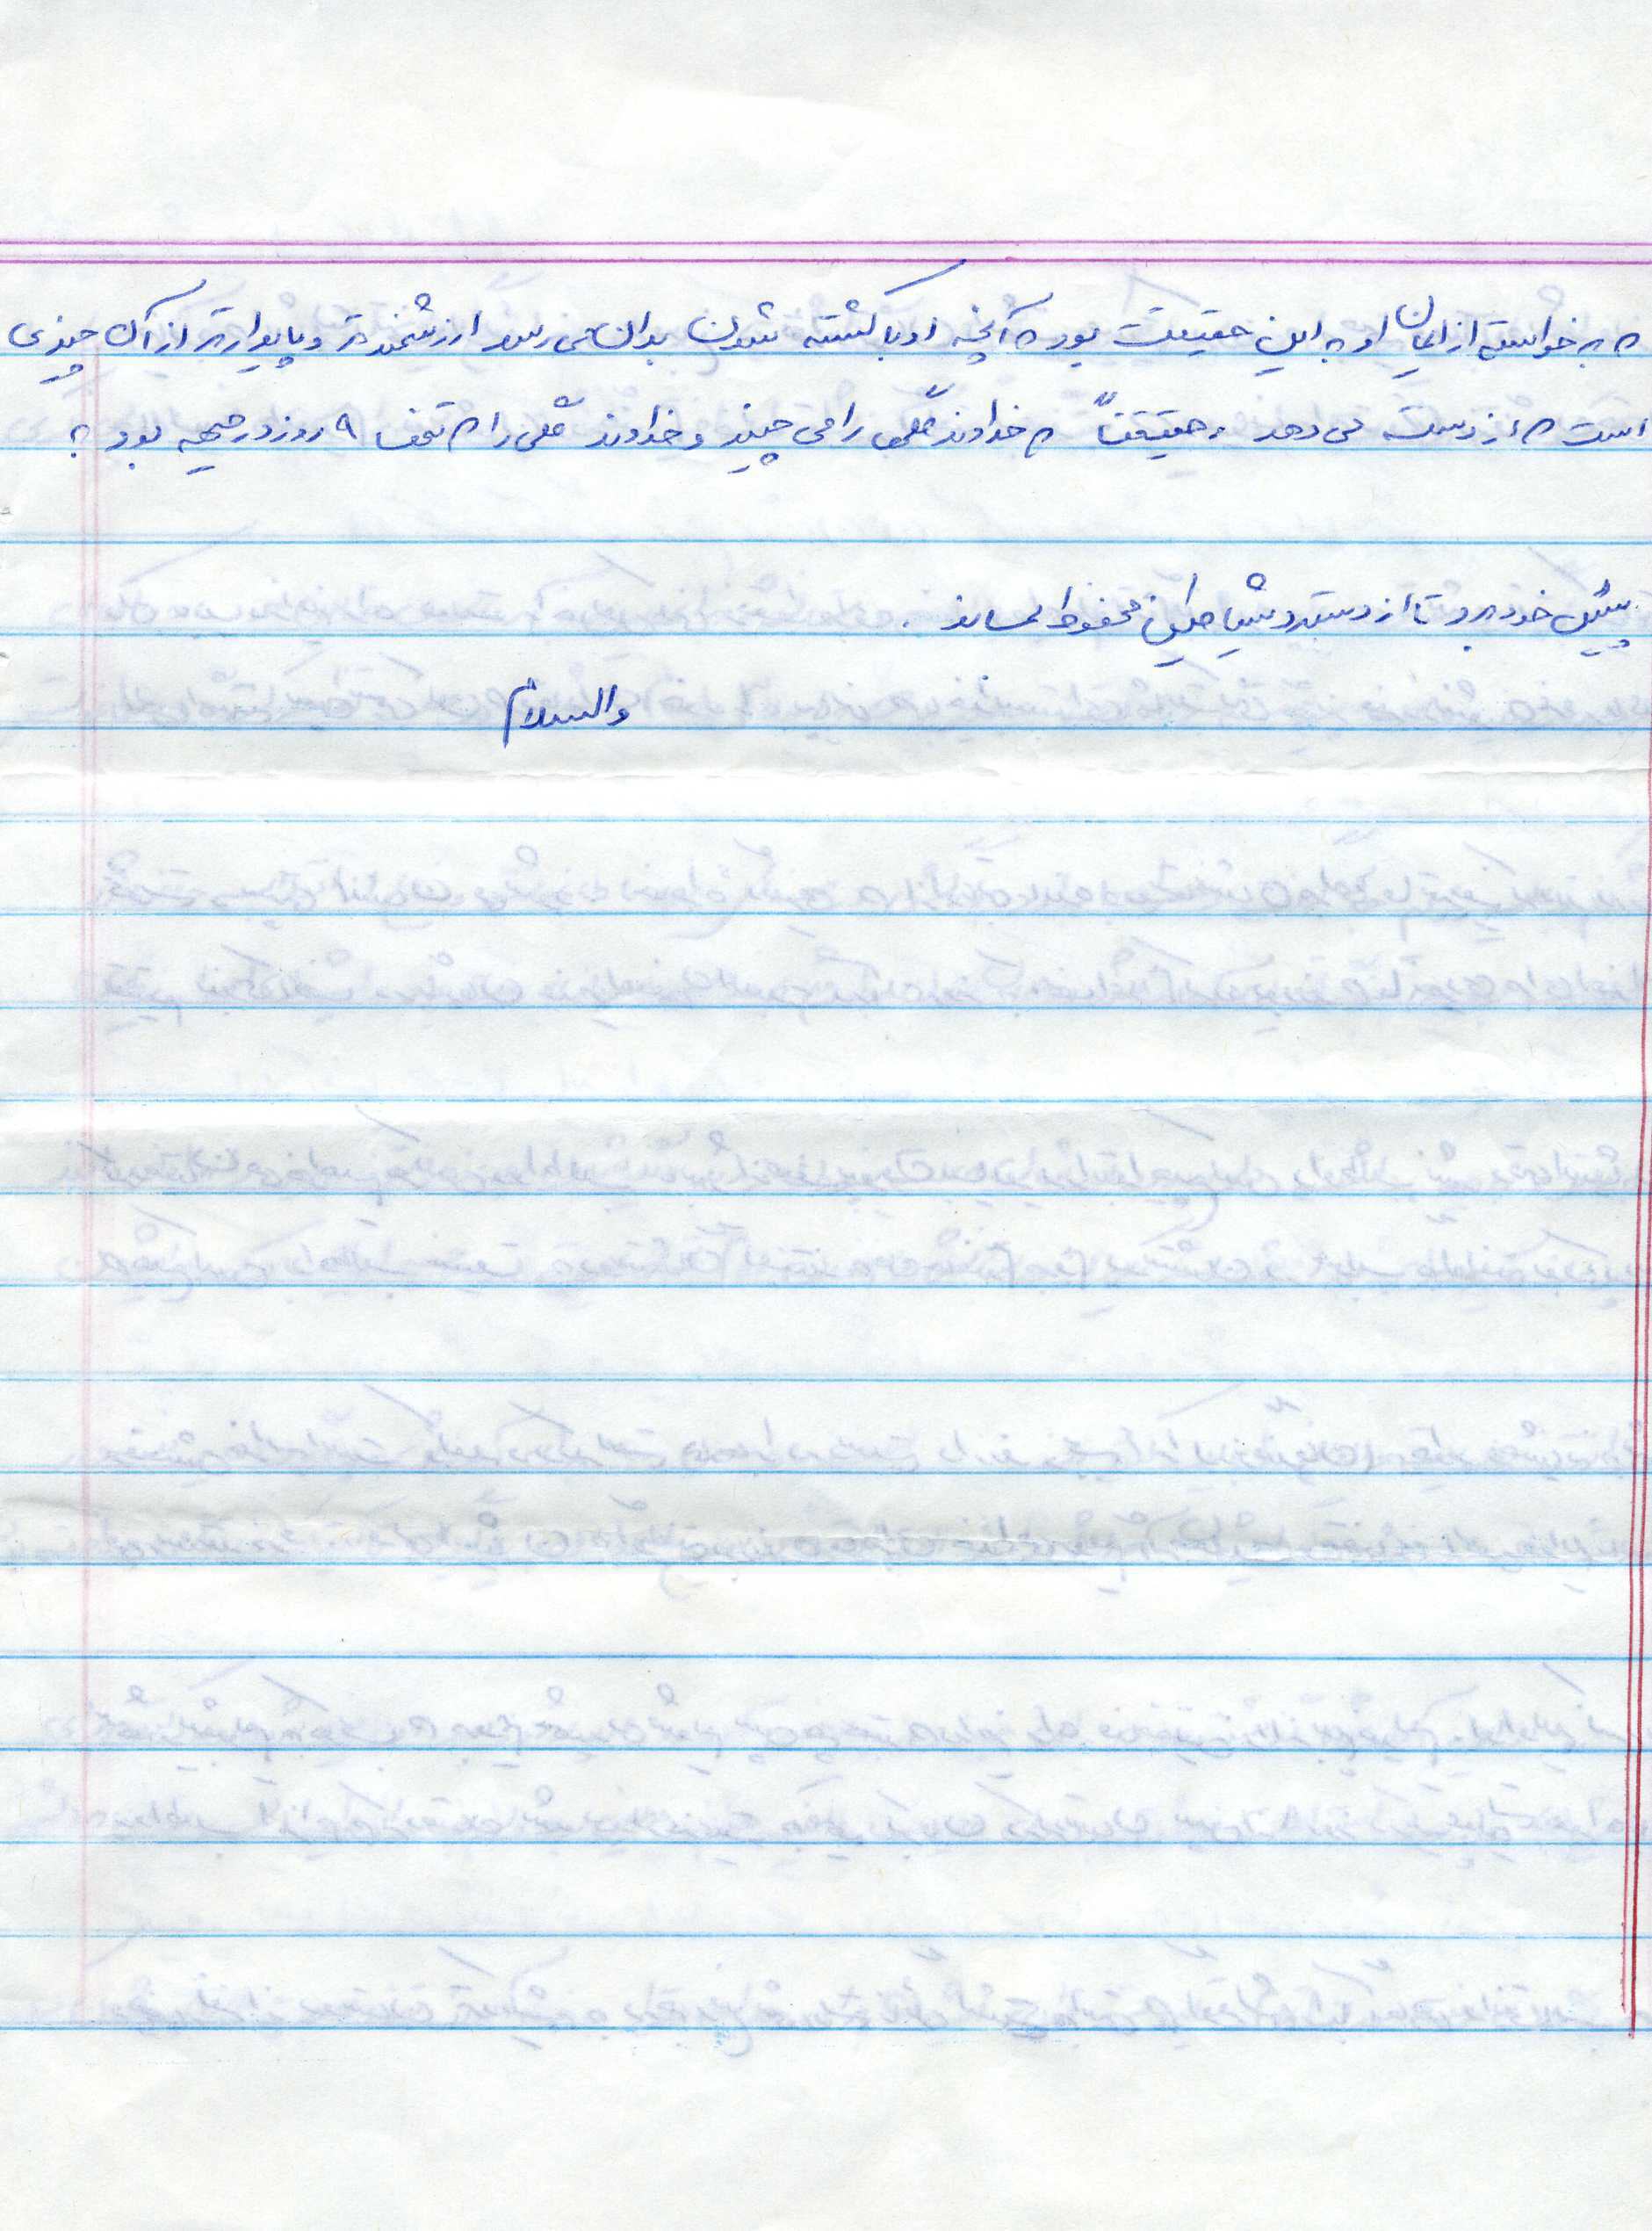 که برخواسته از ایمان او به این حقیقت بود که آنچه او با کشته شدن بدان می رسد ارزشمندتر و پایدارتر از آن چیزی
است که از دست می دهد و حقیقتاً که خداوند را می چیند و خداوند را که تحفه ۹ روز در جبهه بود به
پیش خود برد تا از دستبرد شیاطین محفوظ بماند .
والسلام